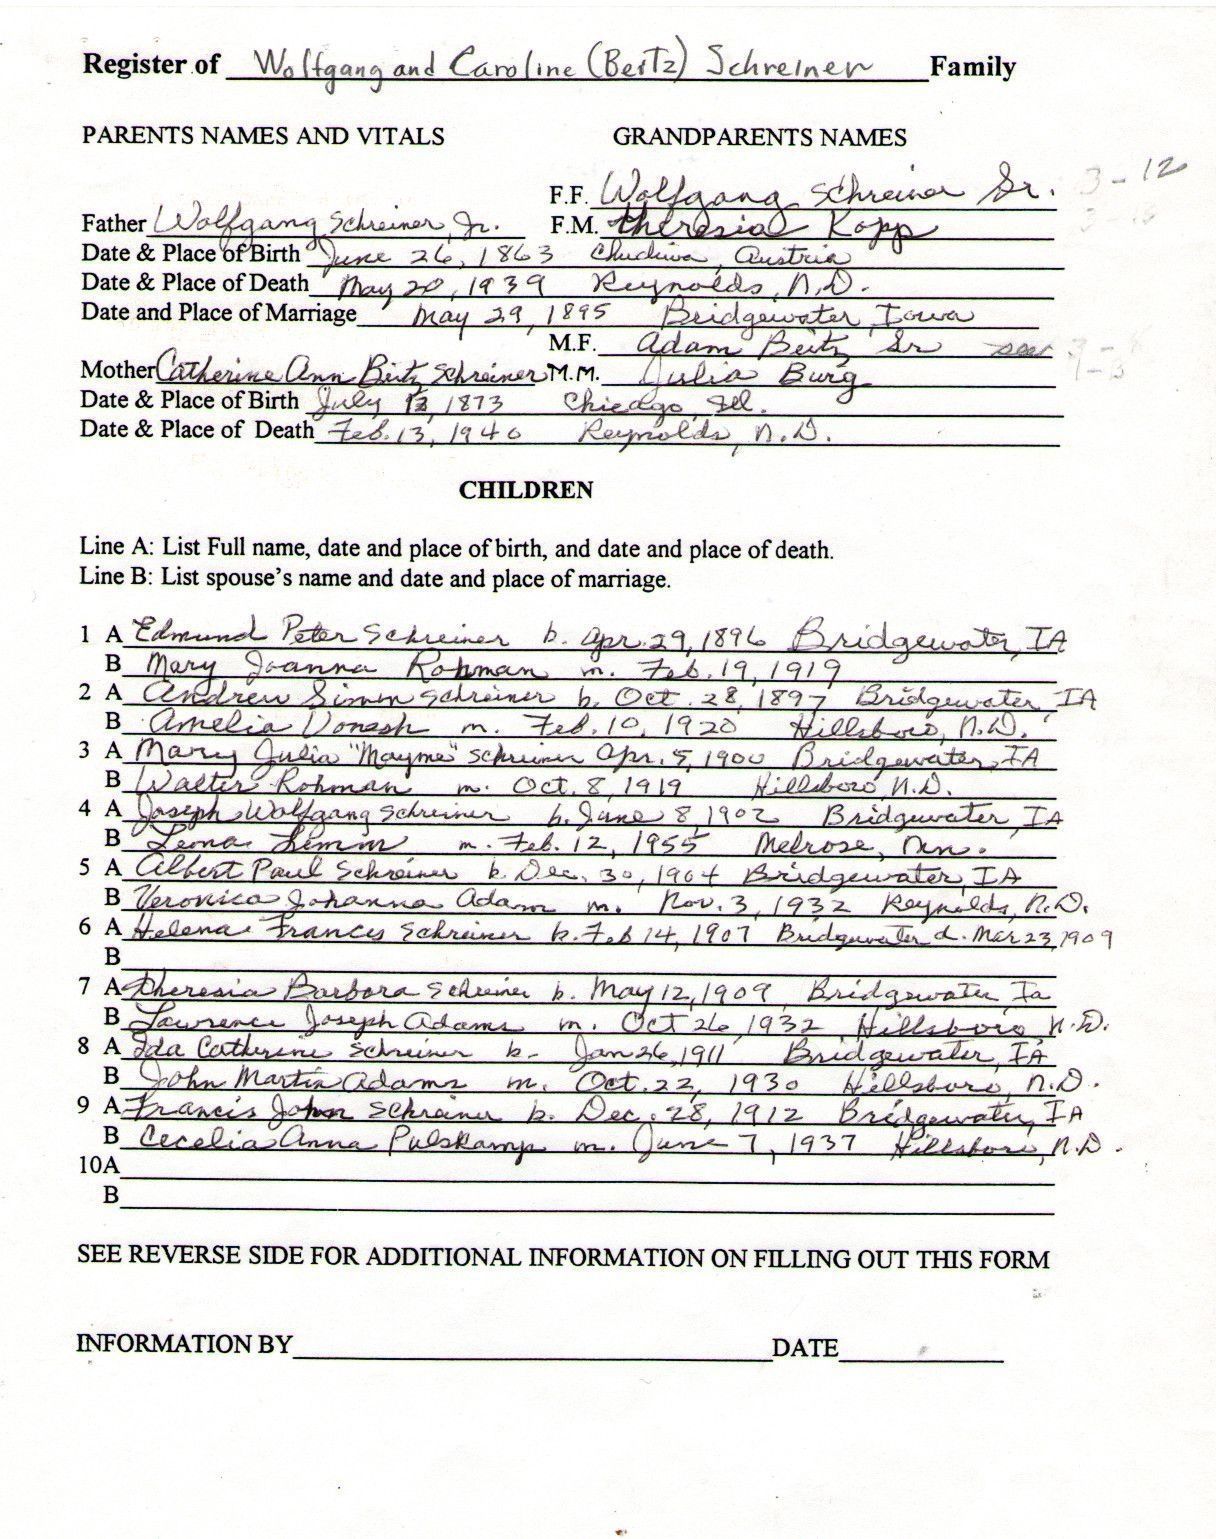 Register of Wolfgang and Caroline (Beitz) Schreiner Family
PARENTS NAMES AND VITALS GRANDPARENTS NAMES
F.F. Wolfgang Schreiner Sr. 3-12
Father Wolfgang Schreiner, Jr. F.M. Theresia Kopp
Date & Place of Birth June 26, 1863 Chudiwa, Austria
Date & Place of Death May 20, 1939 Reynolds, N.D.
Date and Place of Marriage May 29, 1895 Bridgewater, Iowa
M.F. Adam Beitz Sr see
Mother Catherine Ann Beitz Schreiner M.M. Julia Burg
Date & Place of Birth July 1873 Chicago, Ill.
Date & Place of Death Feb. 13, 1940 Reynolds, N.D.
CHILDREN
Line A: List Full name, date and place of birth, and date and place of death.
Line B: List spouse's name and date and place of marriage.
1 A Edmund Peter Schreiner b. Apr. 29, 1896 Bridgewater, IA
B Mary Joanna Rohman m. Feb. 19, 1919
2 A Andrew Simm Schreiner b. Oct. 28, 1897 Bridgewater, IA
B Amelia Vonesh m. Feb. 10, 1920 Hillsboro, N.D.
3 A Mary Julia "Mayme" Schreiner Apr. 5, 1900 Bridgewater, IA
B Walter Rohman m. Oct. 8, 1919 Hillsboro, N.D.
4 A Joseph Wolfgang Schreiner b. June 8, 1902 Bridgewater, IA
B Leona m. Feb. 12, 1955 Melrose, Mn.
5 A Albert Paul Schreiner b. Dec. 30, 1904 Bridgewater, IA
B Veronica Johanna Adam m. Nov. 3, 1932 Reynolds, N.D.
6 A Helena Frances Schreiner b. Feb 14, 1907 Bridgewater d. Mar 23, 1909
B
7 A Theresia Barbara Schreiner b. May 12, 1909, Bridgewater, Ia
B Lawrence Joseph Adams m. Oct 26, 1932 Hillsboro, N.D.
8 A Ida Catherine Schreiner b. Jan 26, 1911 Bridgewater, IA
B John Martin Adams m. Oct. 22, 1930 Hillsboro, N.D.
9 A Francis John Schreiner b. Dec. 28, 1912 Bridgewater, IA
B Cecelia Anna Pulskamp m. June 7, 1937 Hillsboro, N.D.
10A
B
SEE REVERSE SIDE FOR ADDITIONAL INFORMATION ON FILLING OUT THIS FORM
INFORMATION BY DATE